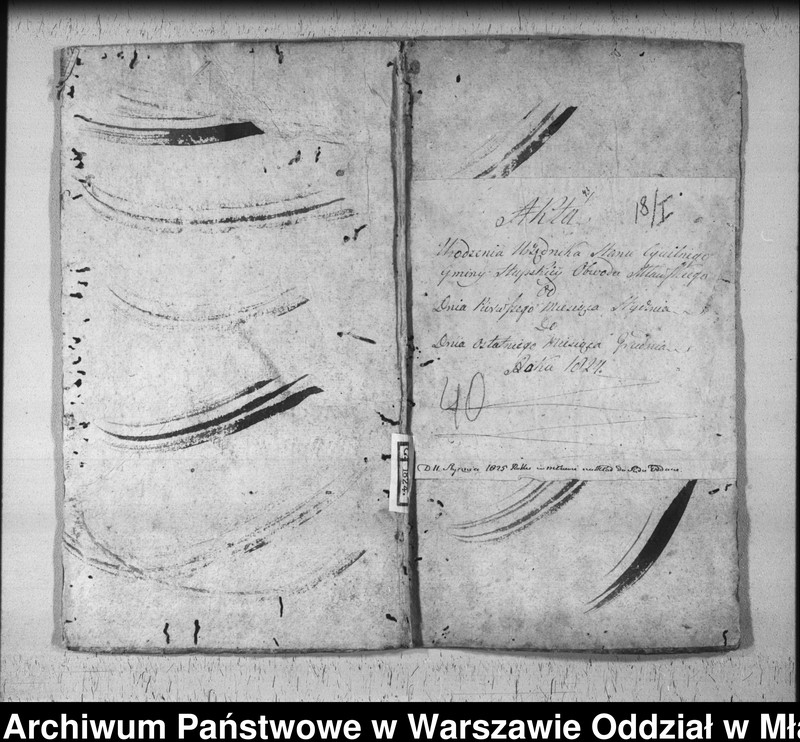 Akta
18/I
Urodzenia Urzędnika Stanu Cywilnego
Gminy Obwodu Mławskiego
od
Dnia Pierwszego Miesiąca Stycznia
Do
Dnia Ostatniego Miesiąca Grudnia
Roku 1824.
40
D. 11. Stycznia 1825 do Oddano
1824.
Archiwum Państwowe w Warszawie Oddział w Mła